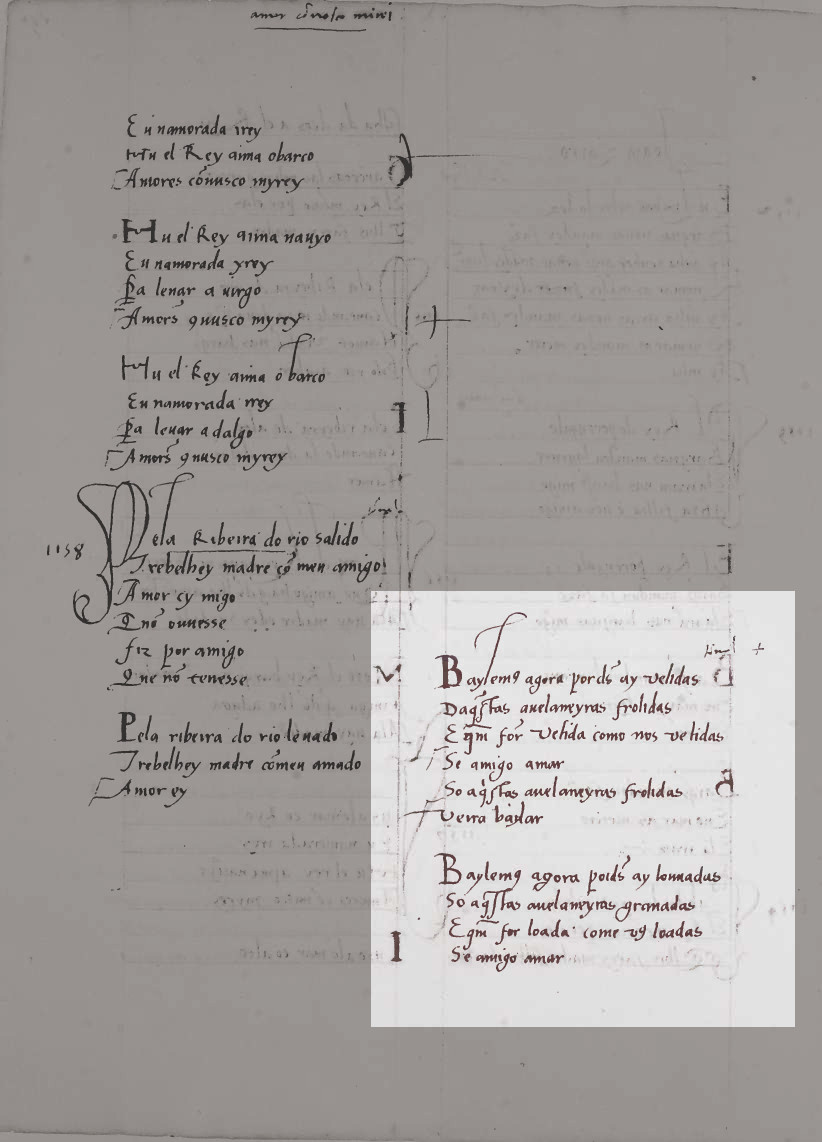 amor cõ uosco mirei
Eu namorada irey
Hu el Rey arma obarco
Amores cõuusco myrey
Hu el Rey arma nauyo
Eu namorada yrey
Pa leuar a uirgo
Amors̃ ɋ uusco myrey
Hu el Rey arma o barco
Eu namorada irey
Pa leuar a dalgo
Amors̃ ɋ nusco myrey
1158
Pela Ribeira do rio salido
Trebelhey madre cõ meu amigo
Amor ey migo
Que nõ ouuesse
fiz por amigo
Que nõ fezesse
Pela ribeira do rio leuado
Trebelhey madre cõmeu amado
Amor ey
Baylemꝯ agora por ds̃ ay uelidas
Daq̃stas auelaneyras frolidas
E q̃m for̃ uelida como nos uelidas
Se amigo amar
So aq̃stas auelaneyras frolidas
Verra baylar
Baylemꝯ agora por ds̃ ay louuadas
So aq̃stas auelaneyras granadas
E q̃m for loada come uꝯ loadas
Se amigo amar